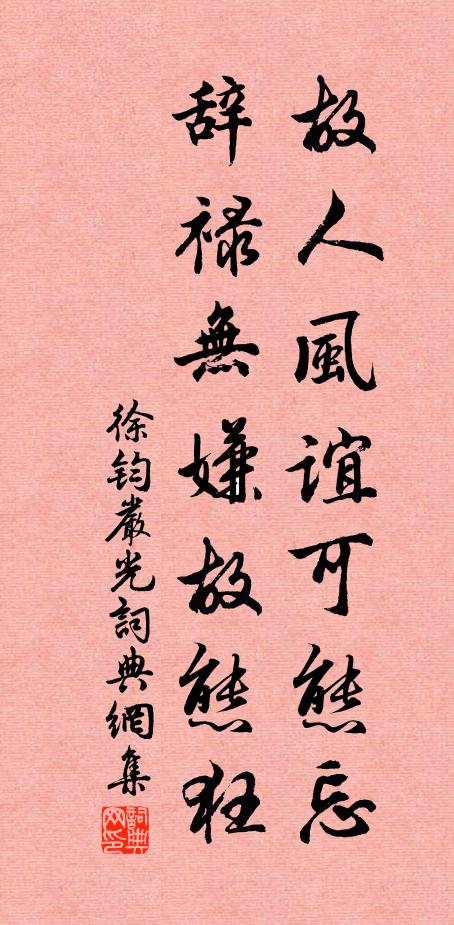 故人風誼可態忘
辞禄無嫌故態狂
徐鈞嚴光詞典網集
詞典网印